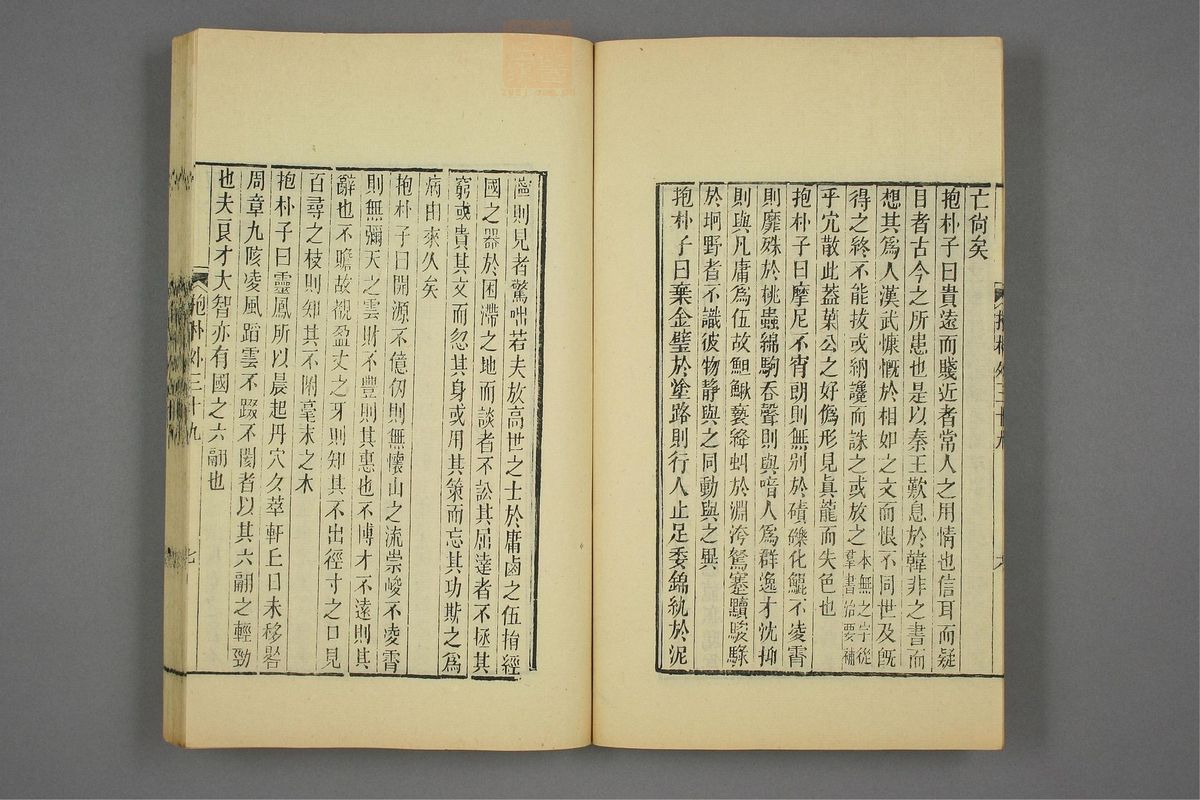 亡尙矣
抱朴子曰貴遠而賤近者常人之用情也信耳而疑
目者古今之所患也是以秦王歎息於韓非之書而
想其爲人漢武慷慨於相如之文而恨不同世及旣
得之終不能拔或納讒而誅之或放之本無之字從羣書治要補
乎宂散此蓋葉公之好僞形見眞龍而失色也
抱朴子曰摩尼不宵朗則無别於磧礫化鯤不凌霄
則靡殊於桃蟲綿駒吞聲則與喑人爲群逸才沈抑
則與凡庸爲伍故鰋鰍褻絳虯於淵洿駑蹇黷駿騄
於坰野者不識彼物静與之同動與之異
抱朴子曰棄金璧於塗路則行人止足委錦紈於泥
濘則見者驚咄若夫放高世之士於庸鹵之伍捐經
國之器於困滯之地而談者不訟其屈達者不拯其
窮或貴其文而忽其身或用其策而忘其功斯之爲
病由來久矣
抱朴子曰開源不億仞則無懷山之流崇峻不凌霄
則無彌天之雲財不豐則其惠也不博才不遠則其
辭也不贍故覩盈丈之牙則知其不出徑寸之口見
百尋之枝則知其不附毫末之木
抱朴子曰靈鳳所以晨起丹穴夕萃軒丘日未移晷
周章九陔凌風蹈雲不踬不閡者以其六翮之輕勁
也夫良才大智亦有國之六翮也
抱朴外三十九
七